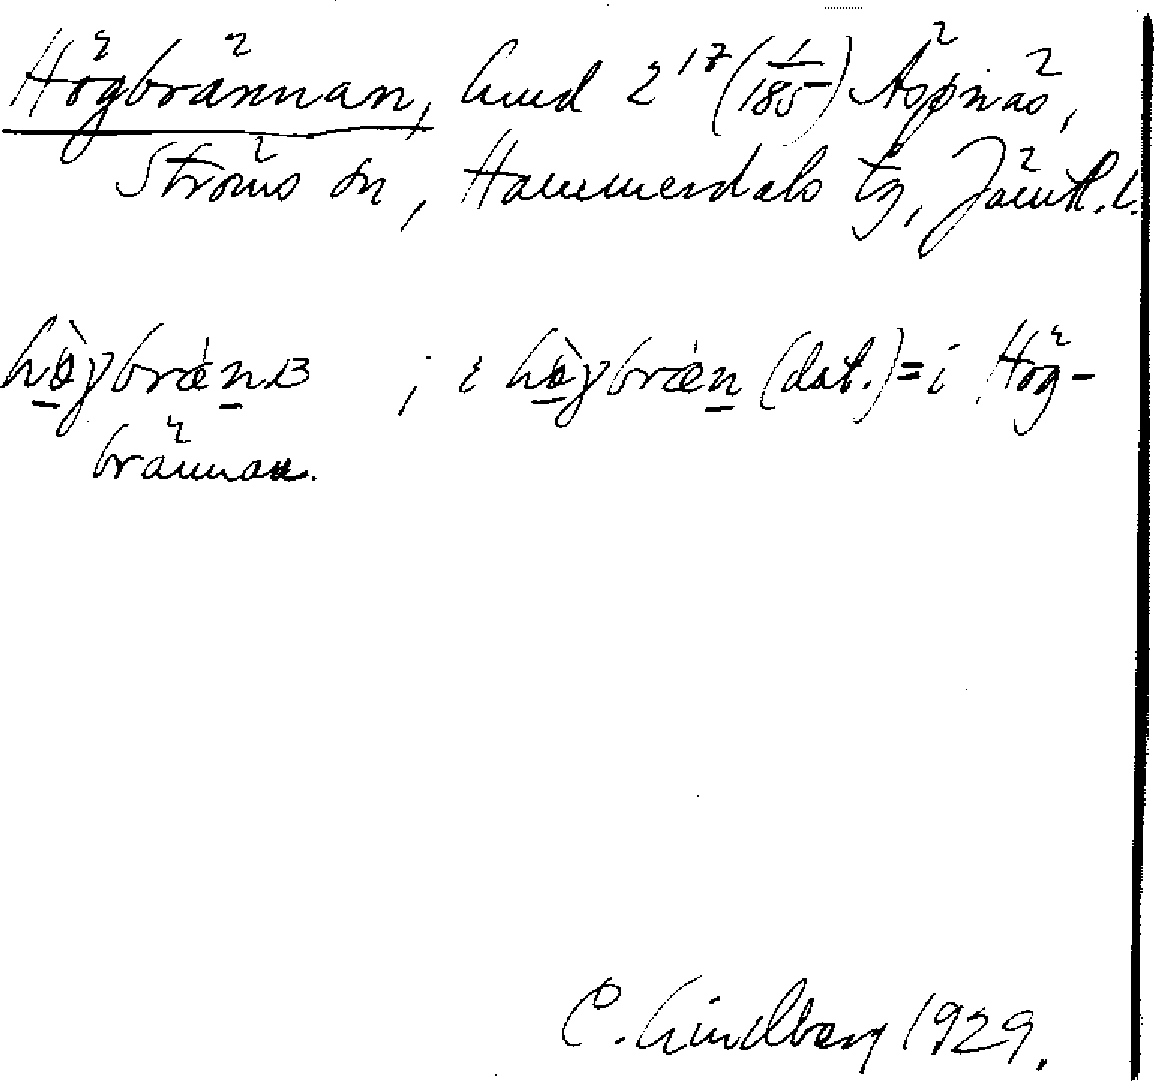 Högbrännan, hmd 2¹⁷(1/185) Äspnäs,
Ströms sn, Hammerdals tg, Jämtl. l.
hø̀gbrǽnʙ ; i hø̀gbrǽn (dat.) = i Hög-
brännan.
C. Lindberg 1929.